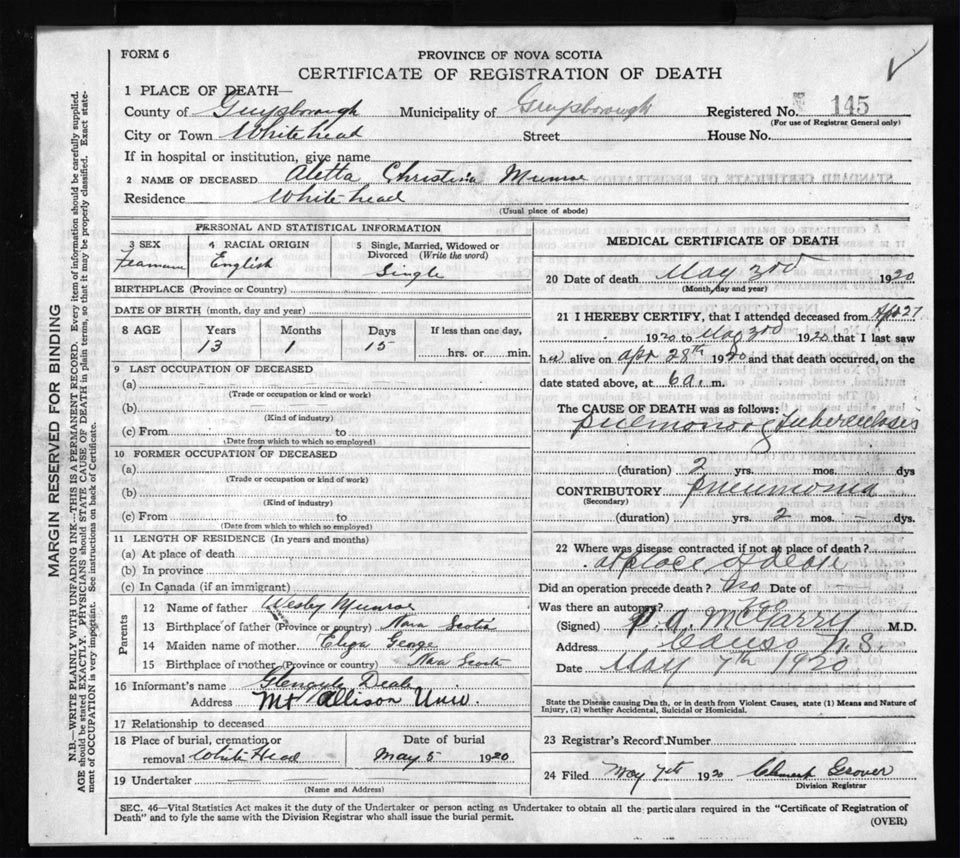 FORM 6
PROVINCE OF NOVA SCOTIA
CERTIFICATE OF REGISTRATION OF DEATH
1 PLACE OF DEATH—
County of Guysborough Municipality of Guysborough Registered No. 145
(For use of Registrar General only)
City or Town White head Street House No.
If in hospital or institution, give name
2 NAME OF DECEASED Aletta Christina Munroe
Residence White head
(Usual place of abode)
PERSONAL AND STATISTICAL INFORMATION
3 SEX 4 RACIAL ORIGIN 5 Single, Married, Widowed or Divorced (Write the word)
English Single
BIRTHPLACE (Province or Country)
DATE OF BIRTH (month, day and year)
8 AGE Years Months Days If less than one day,
13 1 15 hrs. or min.
9 LAST OCCUPATION OF DECEASED
(a)
(Trade or occupation or kind or work)
(b)
(Kind of industry)
(c) From to
(Date from which to which so employed)
10 FORMER OCCUPATION OF DECEASED
(a)
(Trade or occupation of kind of work)
(b)
(Kind of industry)
(c) From to
(Date from which to which so employed)
11 LENGTH OF RESIDENCE (In years and months)
(a) At place of death
(b) In province
(c) In Canada (if an immigrant)
Parents
12 Name of father Wesley Munroe
13 Birthplace of father (Province or country) Nova Scotia
14 Maiden name of mother George
15 Birthplace of mother (Province or country) Nova Scotia
16 Informant's name
Address Mt Allison Univ.
17 Relationship to deceased
18 Place of burial, cremation or removal White Head Date of burial May 5 1920
19 Undertaker
(Name and Address)
MEDICAL CERTIFICATE OF DEATH
20 Date of death May 3rd 1920
(Month, day and year)
21 I HEREBY CERTIFY, that I attended deceased from Apr 27
1920 to May 3rd 1920 that I last saw
her alive on Apr 28th 1920 and that death occurred, on the
date stated above, at 6 a. m.
The CAUSE OF DEATH was as follows:
Pulmonary Tuberculosis
(duration) 2 yrs. — mos. — dys
CONTRIBUTORY Pneumonia
(Secondary)
(duration) yrs. 2 mos. — dys.
22 Where was disease contracted if not at place of death?
at place of death
Did an operation precede death? no Date of —
Was there an autopsy?
(Signed) P. A. McGarry M.D.
Address Canso N.S.
Date May 7th 1920
State the Disease causing Death, or in death from Violent Causes, state (1) Means and Nature of Injury, (2) whether Accidental, Suicidal or Homicidal.
23 Registrar's Record Number
24 Filed May 7th 1920 Clement Grover
Division Registrar
SEC. 46—Vital Statistics Act makes it the duty of the Undertaker or person acting as Undertaker to obtain all the particulars required in the "Certificate of Registration of
Death" and to fyle the same with the Division Registrar who shall issue the burial permit.
(OVER)
MARGIN RESERVED FOR BINDING
N.B.—WRITE PLAINLY WITH UNFADING INK—THIS IS A PERMANENT RECORD. Every item of information should be carefully supplied.
AGE should be stated EXACTLY. PHYSICIANS should STATE CAUSE OF DEATH in plain terms, so that it may be properly classified. Exact state-
ment of OCCUPATION is very important. See instructions on back of Certificate.